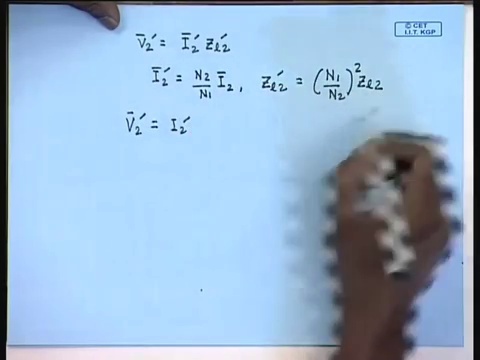 © CET
I.I.T. KGP
V̄₂′ = Ī₂′ Zℓ₂′
Ī₂′ = N₂/N₁ Ī₂, Zℓ₂′ = (N₁/N₂)² Zℓ₂
V̄₂′ = I₂′